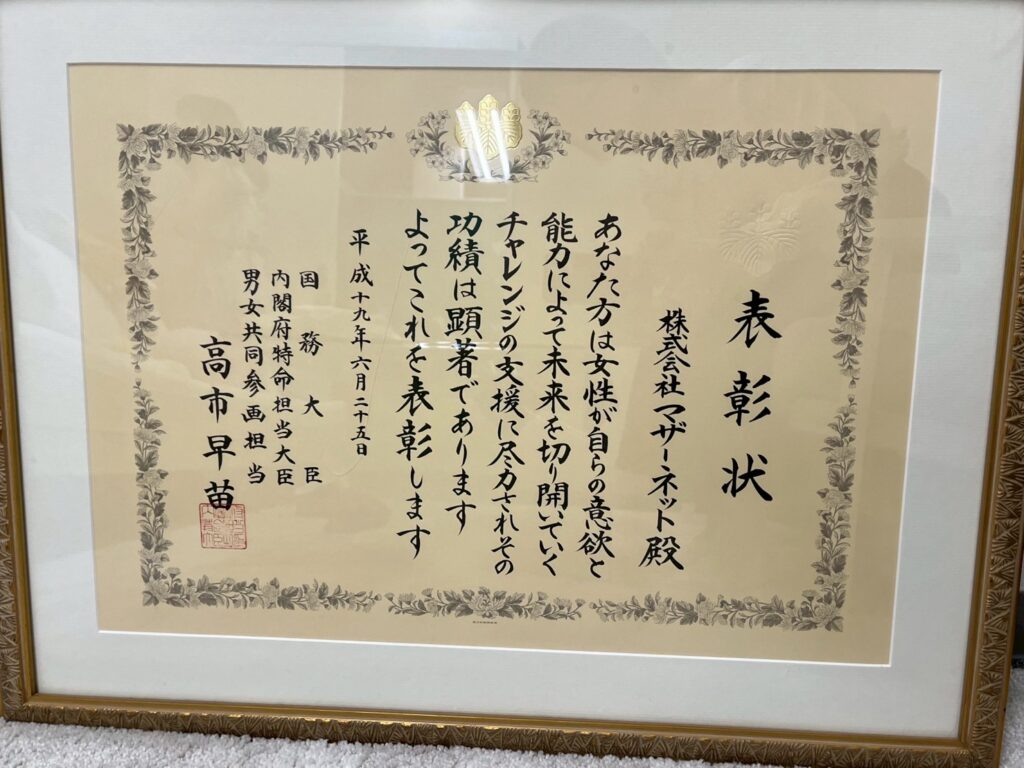 表彰状
株式会社マザーネット殿
あなた方は女性が自らの意欲と
能力によって未来を切り開いていく
チャレンジの支援に尽力されその
功績は顕著であります
よってこれを表彰します
平成十九年六月二十五日
国務大臣
内閣府特命担当大臣
男女共同参画担当
高市早苗